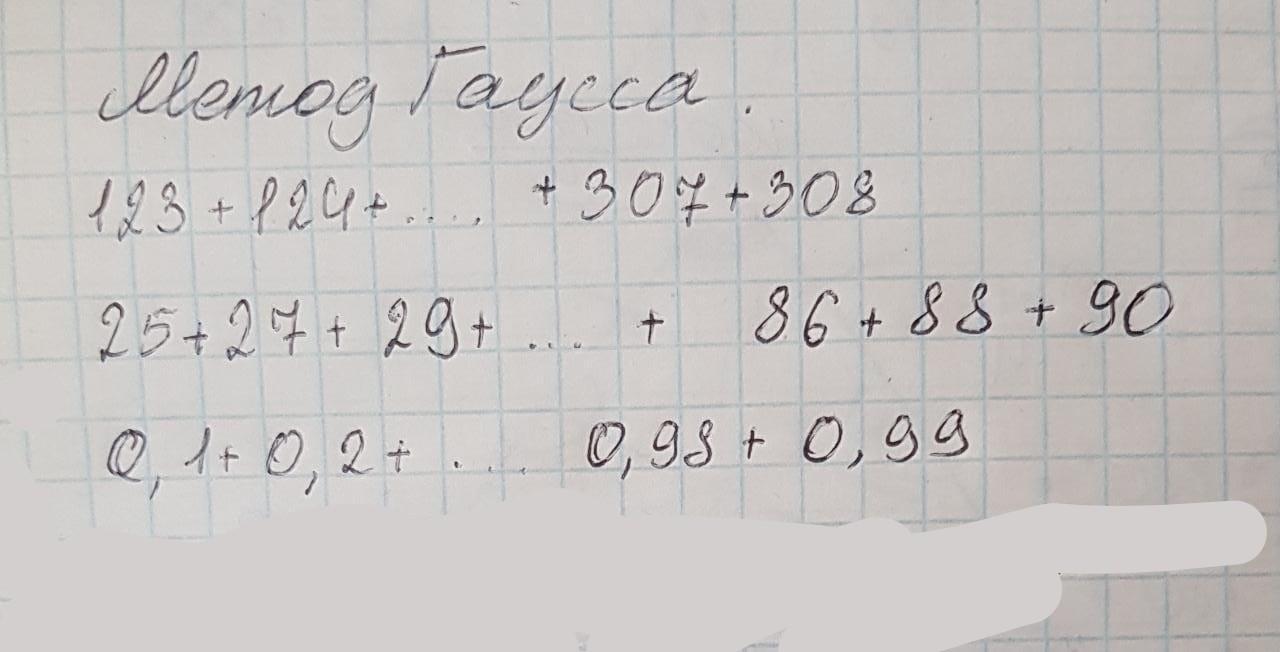 Метод Гаусса.
123+124+.... +307+308
25+27+29+... + 86+88+90
0,1+0,2+.... 0,98+0,99